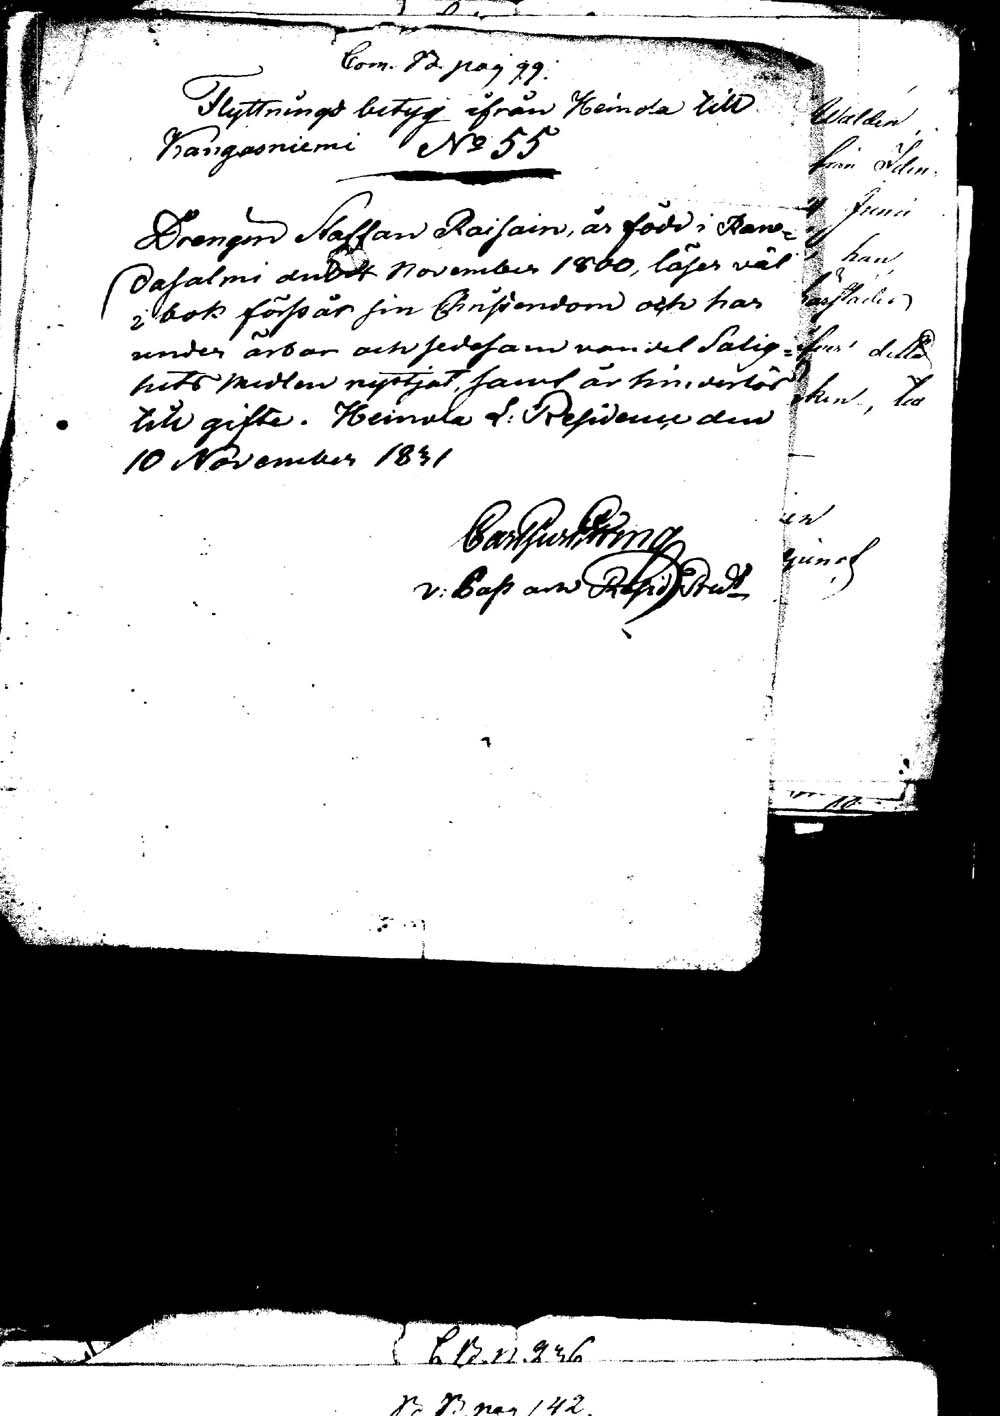 Com. B. pag 99.
Flyttnings betyg ifrån Heinola till
Kangasniemi No 55
Drengen Staffan Raisain, är född i Ran=
dasalmi den November 1800, läser väl
i bok förstår sin Christendom och har
under ärbar och sedesam vandel Salig=
hets medlen nyttjat, samt är hinderlös
till gifte. Heinola L: Residence den
10 November 1831
v: Past och Resid: Pred
Walden
från
Juni
han
detta
L.B.N. 236
B. B. pag 142.